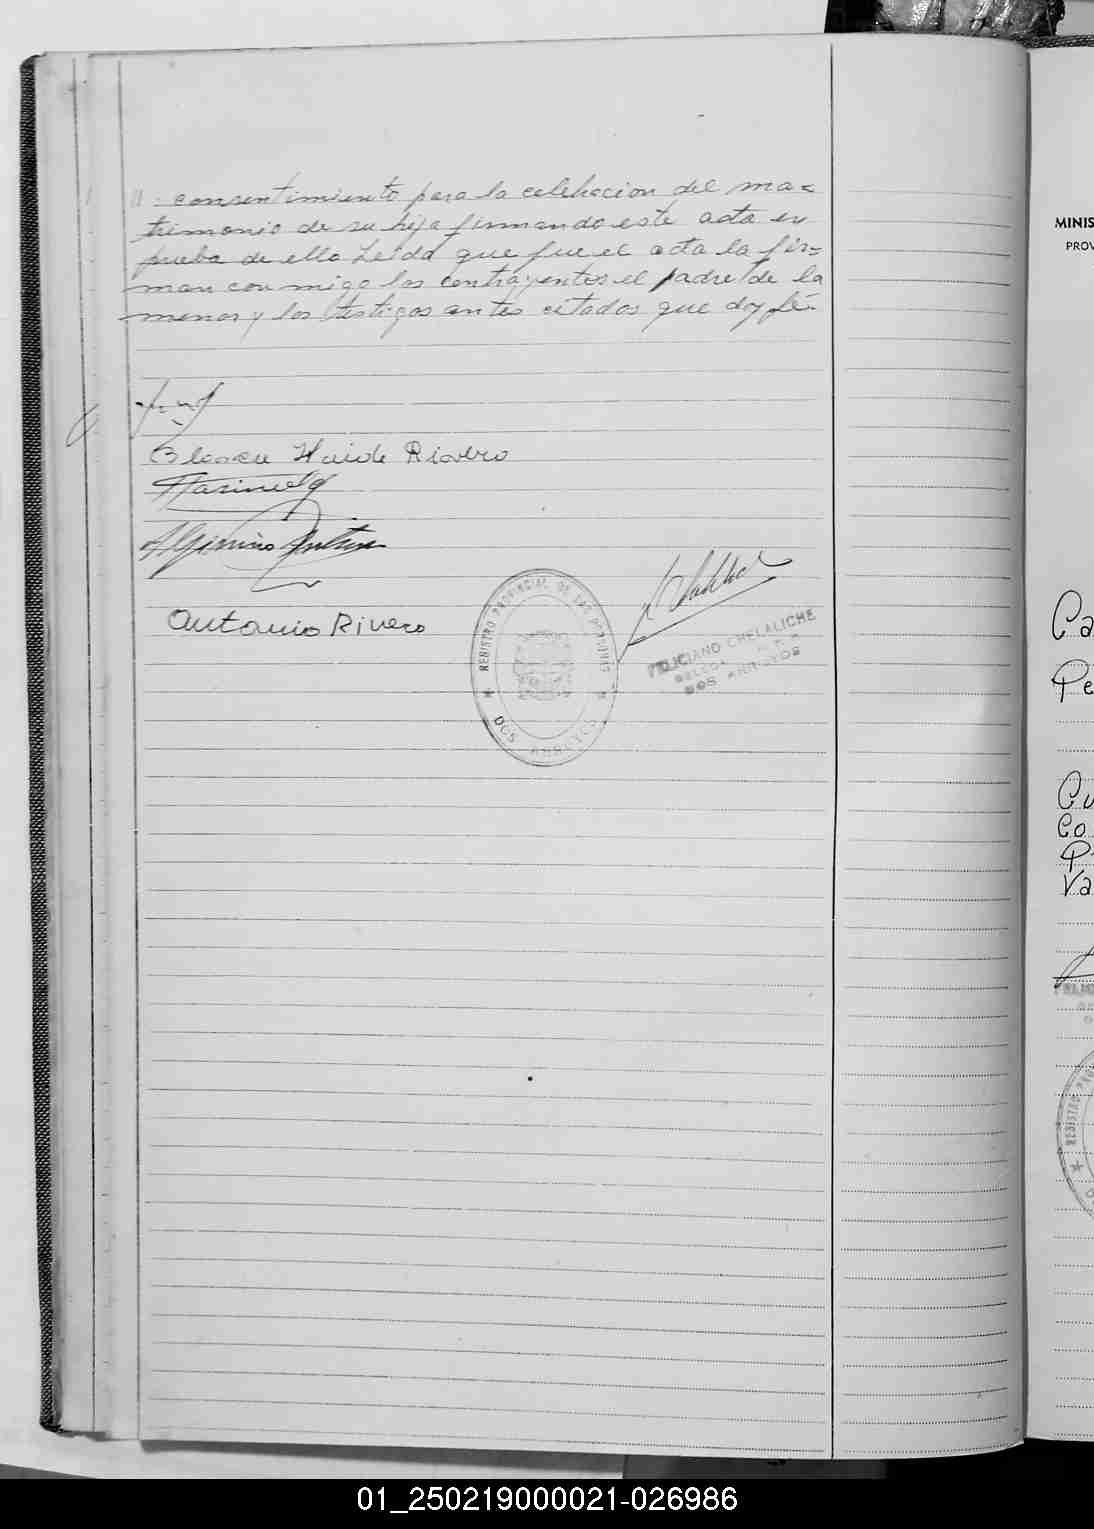 consentimiento para la celebracion del ma=
trimonio de su hija firmando este acta en
prueba de ello Leida que fue el acta la fir=
man con migo los contrayentes el padre de la
menor y los testigos antes citados que doy fé.
Haide Rivero
Antonio Rivero
REGISTRO PROVINCIAL DE LAS PERSONAS
DOS ARROYOS
FELICIANO CHELALICHE
DOS ARROYOS
MINIS
PROV
Ca
Pe
Cu
Co
Va
FELIC
REGISTRO PRO
01_250219000021-026986